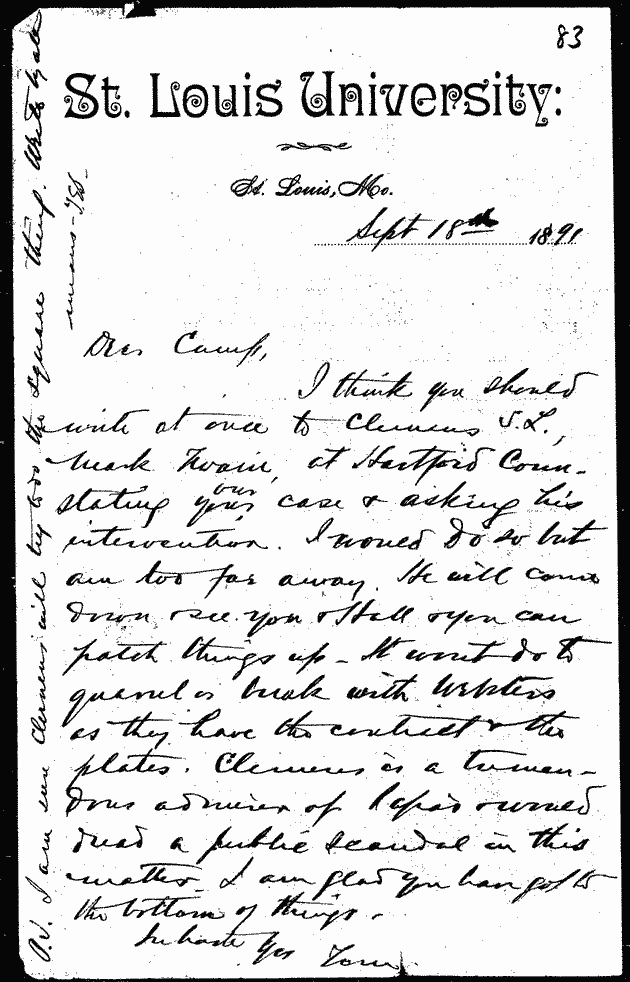 83
St. Louis University:
St. Louis, Mo.
Sept 18th 1891
Dear Camp,
I think you should
write at once to Clemens S.L.,
Mark Twain, at Hartford Conn.
stating your our case & asking his
intervention. I would do so but
am too far away. He will come
down & see you & Hall & you can
patch things up - It wont do to
quarrel or break with Websters
as they have the contract & the
plates. Clemens is a tremen-
dous admirer of Papa's & would
dread a public scandal in this
matter. I am glad you have got to
the bottom of things.
In haste Yrs Tom
P.S. I am sure Clemens will try to do the square thing. Write by all
means - TES-